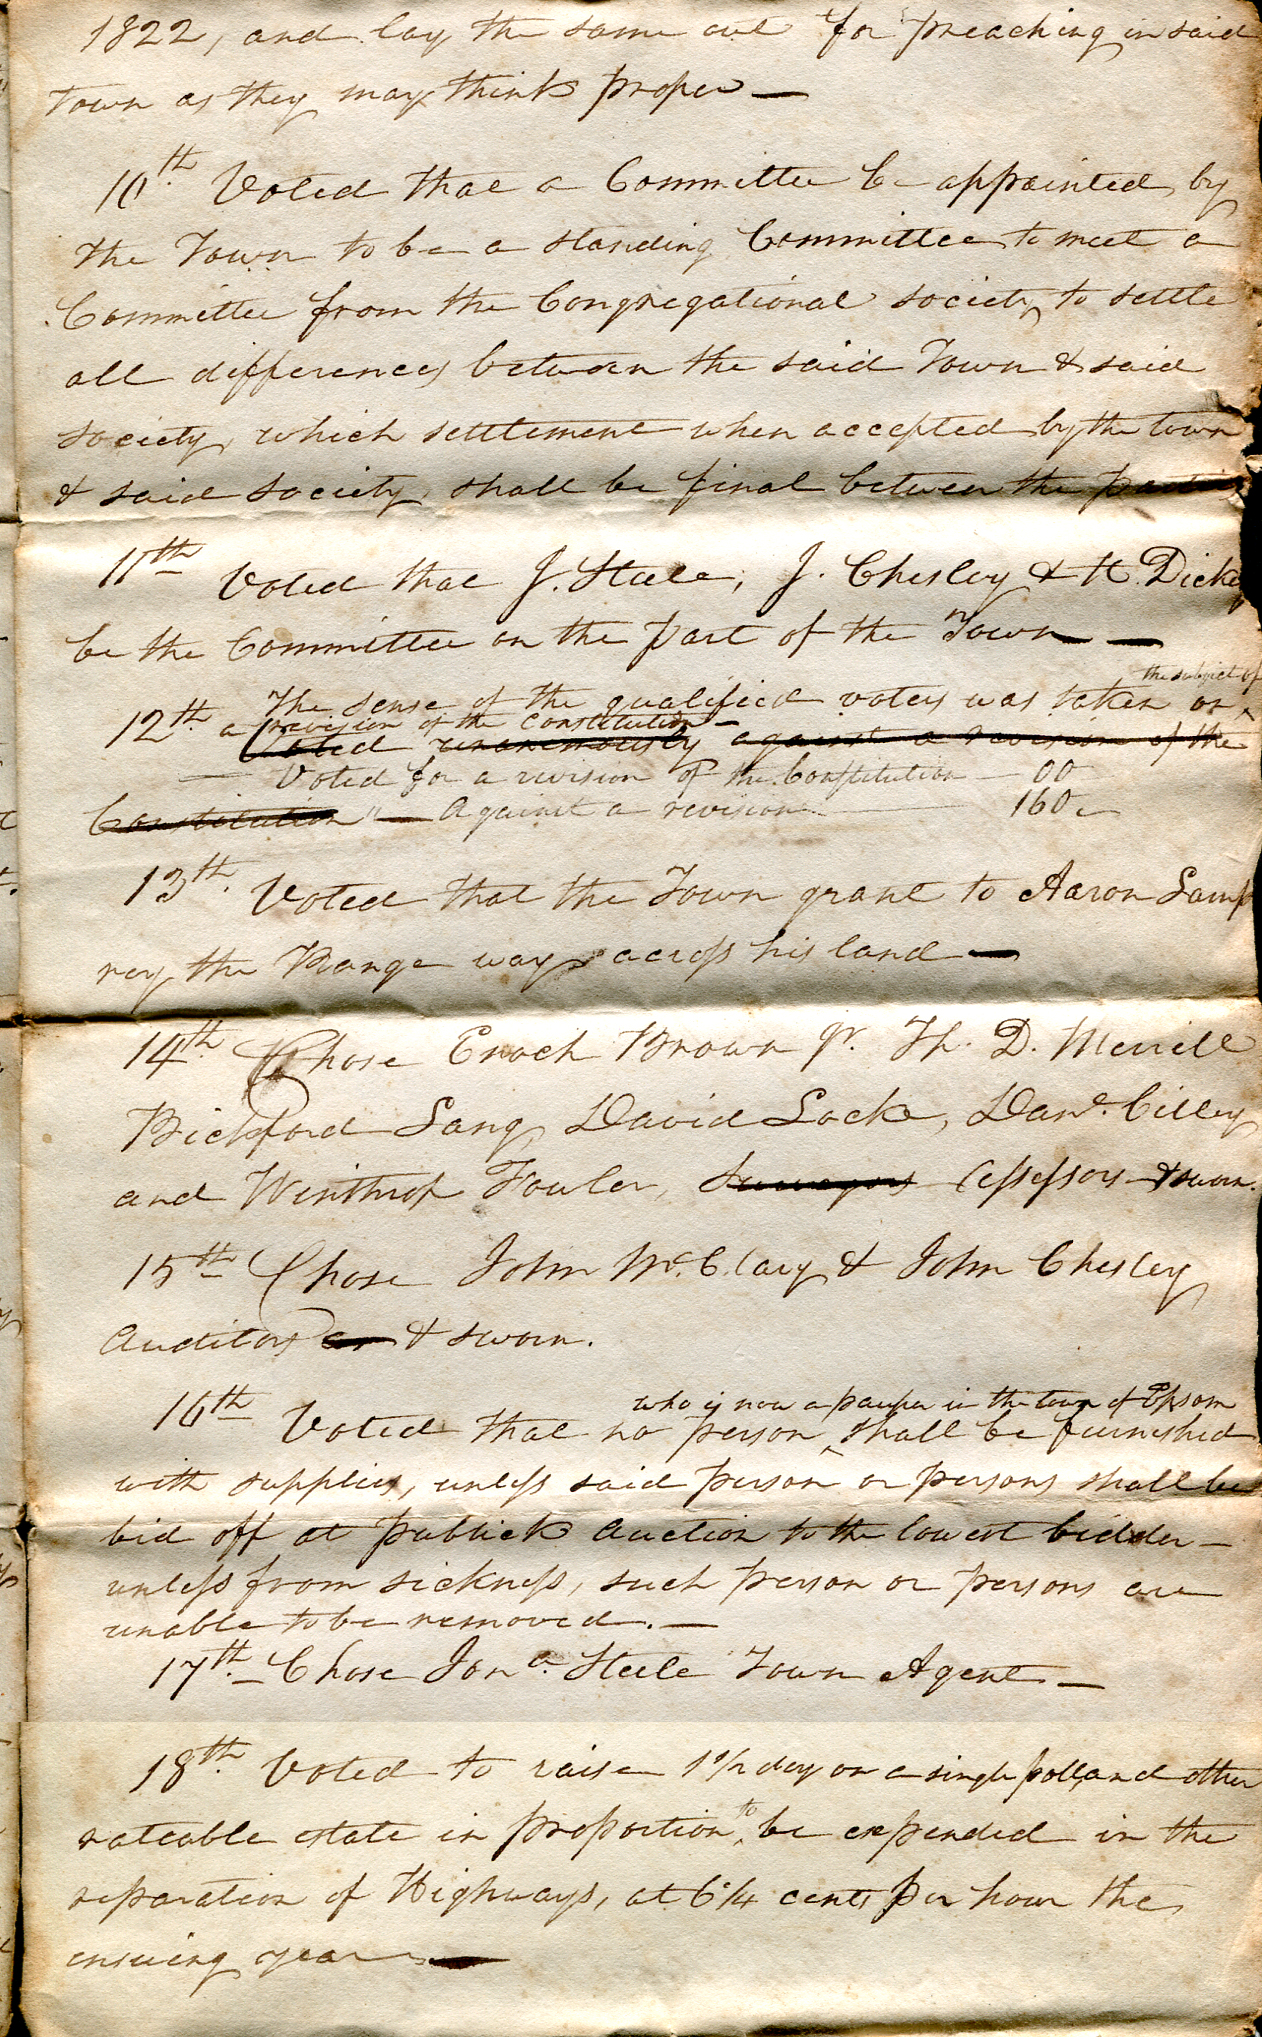 1822, and lay the same out for preaching in said
town as they may think proper —
10th. Voted that a Committee be appointed by
the Town to be a standing Committee to meet a
Committee from the Congregational society, to settle
all differences between the said Town & said
society, which settlement when accepted by the town
& said society, shall be final between the parties
11th Voted that J. Steele, J. Chesley & H. Dickey
be the Committee on the part of the Town —
the subject of
The sense of the qualified voters was taken on ^
12th. a revision of the Constitution —
Voted unanimously against a revision of the
— Voted for a revision of the Constitution — 00
Constitution " — Against a revision — 160
13th. Voted that the Town grant to Aaron Lamp
rey the Range way across his land —
14th. Chose Enoch Brown Jr. Th. D. Merrill
Bickford Lang, David Locke, Danl. Cilley
and Winthrop Fowler, Surveyors Assessors & sworn.
15th Chose John McClary & John Chesley
Auditors & sworn.
who is now a pauper in the town of Epsom
16th Voted that no person ^ shall be furnished
with supplies, unless said person or persons shall be
bid off at publick Auction to the lowest bidder —
unless from sickness, such person or persons are
unable to be removed. —
17th. — Chose Jona. Steele Town Agent —
18th. Voted to raise 1 1/2 day on a single poll, and other
rateable estate in proportion ^to be expended in the
reparation of Highways, at 6 1/4 cents per hour the
ensuing year —